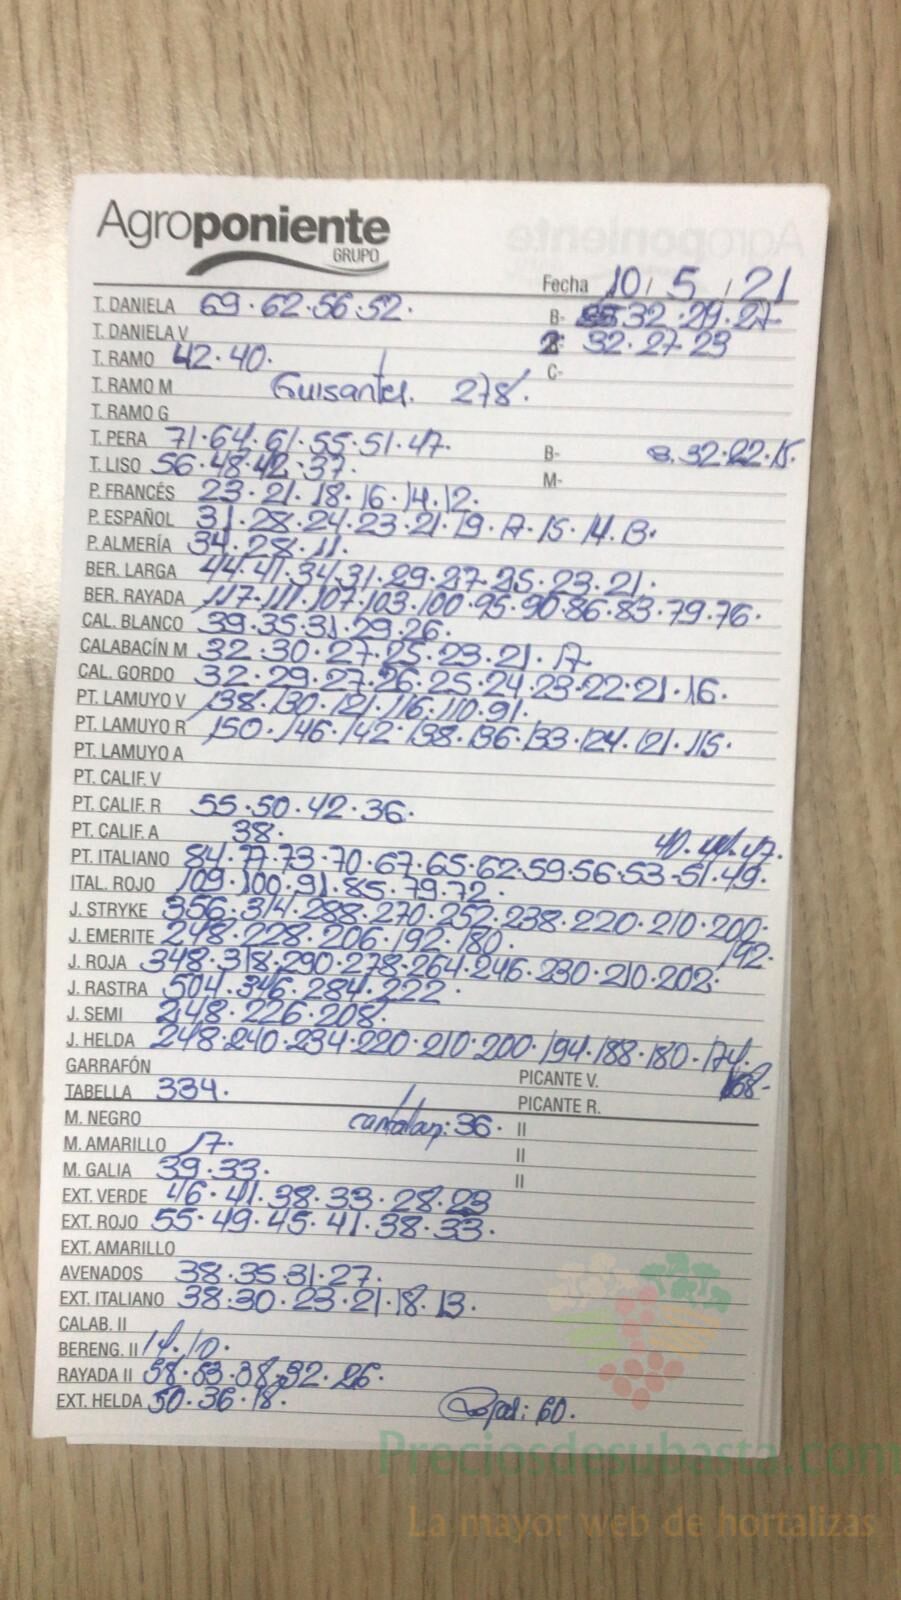 Agroponiente
GRUPO
Fecha 10/5/21
T. DANIELA 69·62·56·52· B- 32·29·27
T. DANIELA V 32·27·23
T. RAMO 42·40· C-
T. RAMO M Guisantes. 278.
T. RAMO G
T. PERA 71·64·61·55·51·47· B- B.32·22·15.
T. LISO 56·48·42·37· M-
P. FRANCÉS 23·21·18·16·14·12·
P. ESPAÑOL 31·28·24·23·21·19·17·15·14·13·
P. ALMERÍA 34·28·11·
BER. LARGA 44·41·34·31·29·27·25·23·21·
BER. RAYADA 117·111·107·103·100·95·90·86·83·79·76·
CAL. BLANCO 39·35·31·29·26·
CALABACÍN M 32·30·27·25·23·21·17
CAL. GORDO 32·29·27·26·25·24·23·22·21·16·
PT. LAMUYO V 138·130·121·116·110·91·
PT. LAMUYO R 150·146·142·138·136·133·124·121·115·
PT. LAMUYO A
PT. CALIF. V
PT. CALIF. R 55·50·42·36·
PT. CALIF. A 38·
PT. ITALIANO 84·77·73·70·67·65·62·59·56·53·51·49· 47. 44. 40.
ITAL. ROJO 109·100·91·85·79·72·
J. STRYKE 356·314·288·270·252·238·220·210·200· 192·
J. EMERITE 248·228·206·192·180·
J. ROJA 348·318·290·278·264·246·230·210·202·
J. RASTRA 504·346·284·222·
J. SEMI 248·226·208·
J. HELDA 248·240·234·220·210·200·194·188·180·174· 168·
GARRAFÓN PICANTE V.
TABELLA 334· PICANTE R.
M. NEGRO cantaloup: 36· II
M. AMARILLO 17· II
M. GALIA 39·33· II
EXT. VERDE 46·41·38·33·28·23
EXT. ROJO 55·49·45·41·38·33·
EXT. AMARILLO
AVENADOS 38·35·31·27·
EXT. ITALIANO 38·30·23·21·18·13·
CALAB. II
BERENG. II 14·10·
RAYADA II 58·53·38·32·26·
EXT. HELDA 50·36·18· 60·
Preciosdesubasta.com
La mayor web de hortalizas